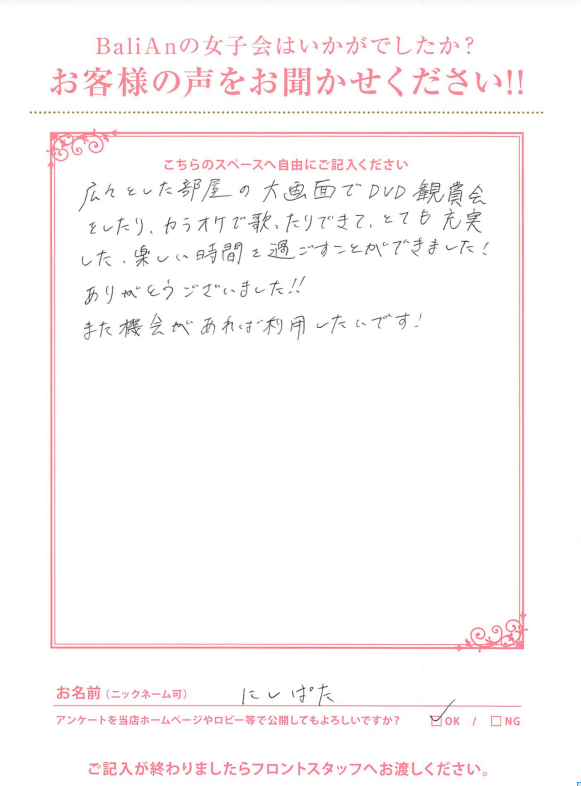 BaliAnの女子会はいかがでしたか？
お客様の声をお聞かせください!!
こちらのスペースへ自由にご記入ください
広々とした部屋の大画面でDVD観賞会
をしたり、カラオケで歌ったりできて、とても充実
した、楽しい時間を過ごすことができました！
ありがとうございました!!
また機会があれば利用したいです！
お名前（ニックネーム可） にしぱた
アンケートを当店ホームページやロビー等で公開してもよろしいですか？ ☑OK / □NG
ご記入が終わりましたらフロントスタッフへお渡しください。